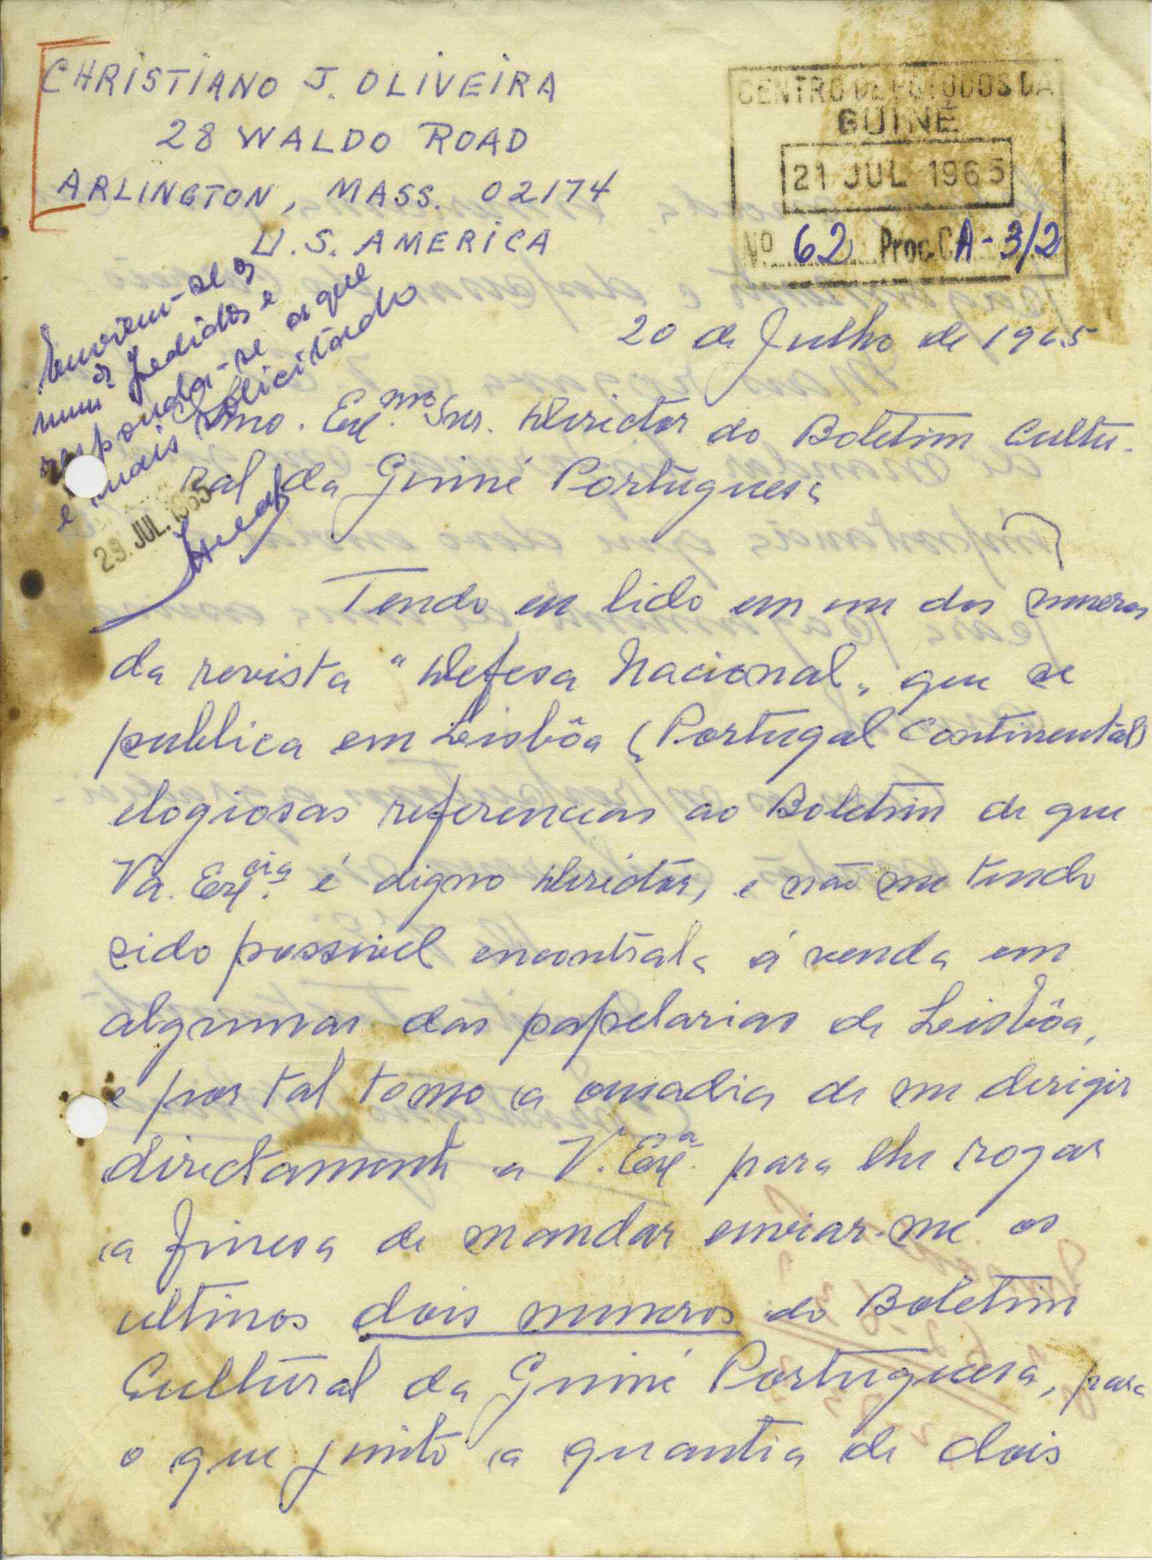 CHRISTIANO J. OLIVEIRA
28 WALDO ROAD
ARLINGTON, MASS. 02174
U.S. AMERICA
CENTRO DE ESTUDOS DA
GUINÉ
21 JUL 1965
Nº 62 Proc. CA-3/2
Enviem-se os
num.os pedidos e
responda-se ao que
e mais solicitando
29. JUL. 1965
20 de Julho de 1965
Ilmo. Exmo. Snr. Director do Boletim Cultu-
ral da Guiné Portuguesa
Tendo eu lido em um dos numeros
da revista "Defesa Nacional" que se
publica em Lisbôa (Portugal Continental)
elogiosas referencias ao Boletim de que
Va. Excia. é digno Director, e não me tendo
sido possivel encontrala á venda em
algumas das papelarias de Lisbôa,
e por tal tomo a ousadia de me derigir
directamente a V. Exa. para lhe rogar
a finesa de mandar enviar-me os
ultimos dois numeros do Boletim
Cultural da Guiné Portuguesa, para
o que junto a quantia de dois